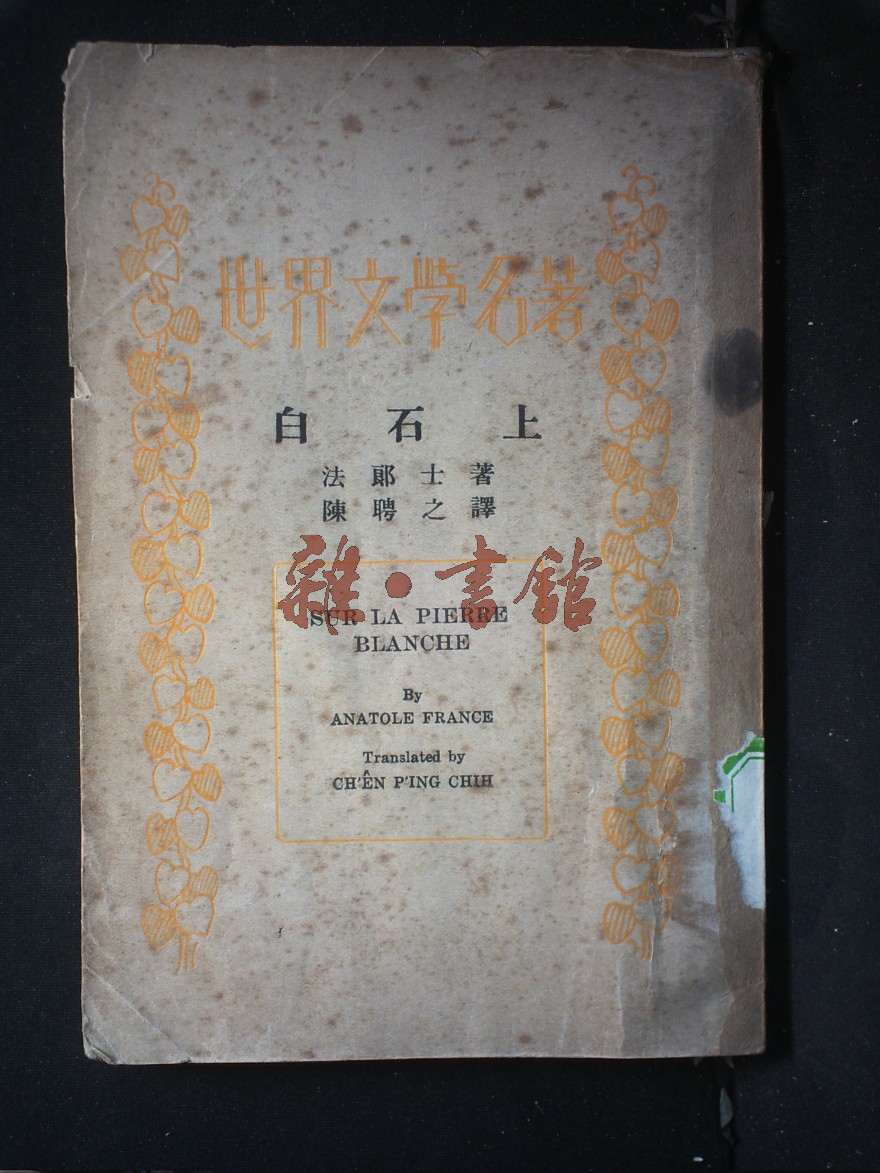 世界文学名著
白石上
法郞士著
陳聘之譯
雜·書館
SUR LA PIERRE
BLANCHE
By
ANATOLE FRANCE
Translated by
CH'ÊN P'ING CHIH